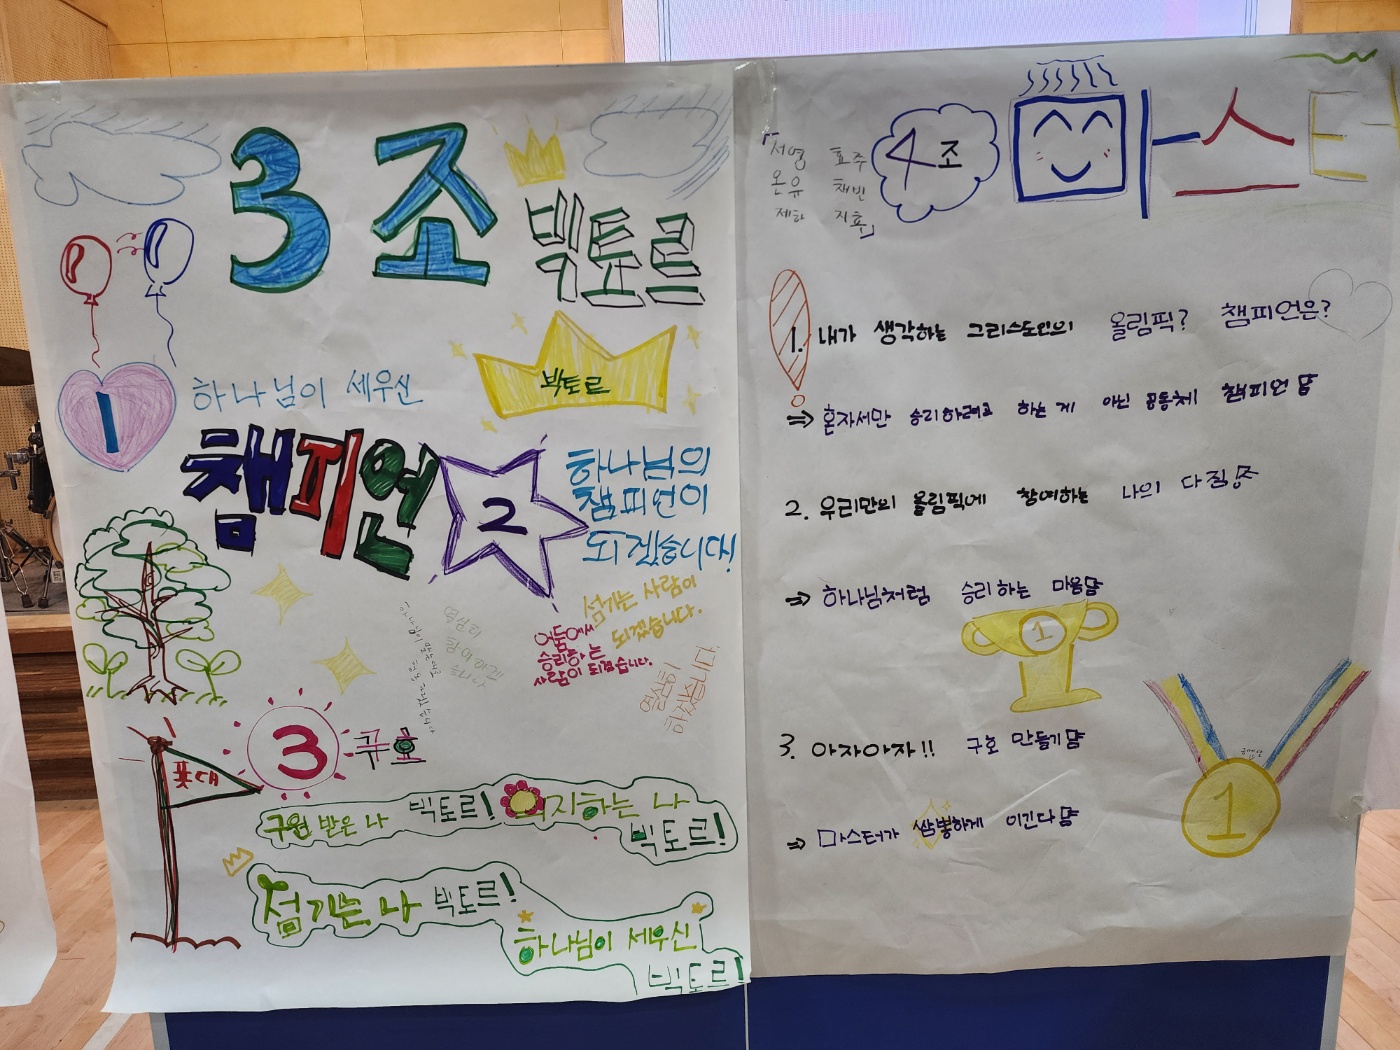 3조
빅토르
빅토르
1 하나님이 세우신
챔피언
2 하나님의
챔피언이
되겠습니다!
섬기는 사람이
되겠습니다.
어둠에서
승리하는
사람이 되겠습니다.
열심히
하겠습니다.
3 구호
구원 받은 나 빅토르!
지하는 나
빅토르!
섬기는 나 빅토르!
하나님이 세우신
빅토르!
「서영 효주
온유 채빈
제하 지효」
4조
ㅁㅏ스터
1. 내가 생각하는 그리스도인의 올림픽? 챔피언은?
⇒ 혼자서만 승리하려고 하는 게 아닌 공동체 챔피언
2. 우리만의 올림픽에 참여하는 나의 다짐
⇒ 하나님처럼 승리하는 마음
1
3. 아자아자!! 구호 만들기
⇒ 마스터가 쌈뽕하게 이긴다
1